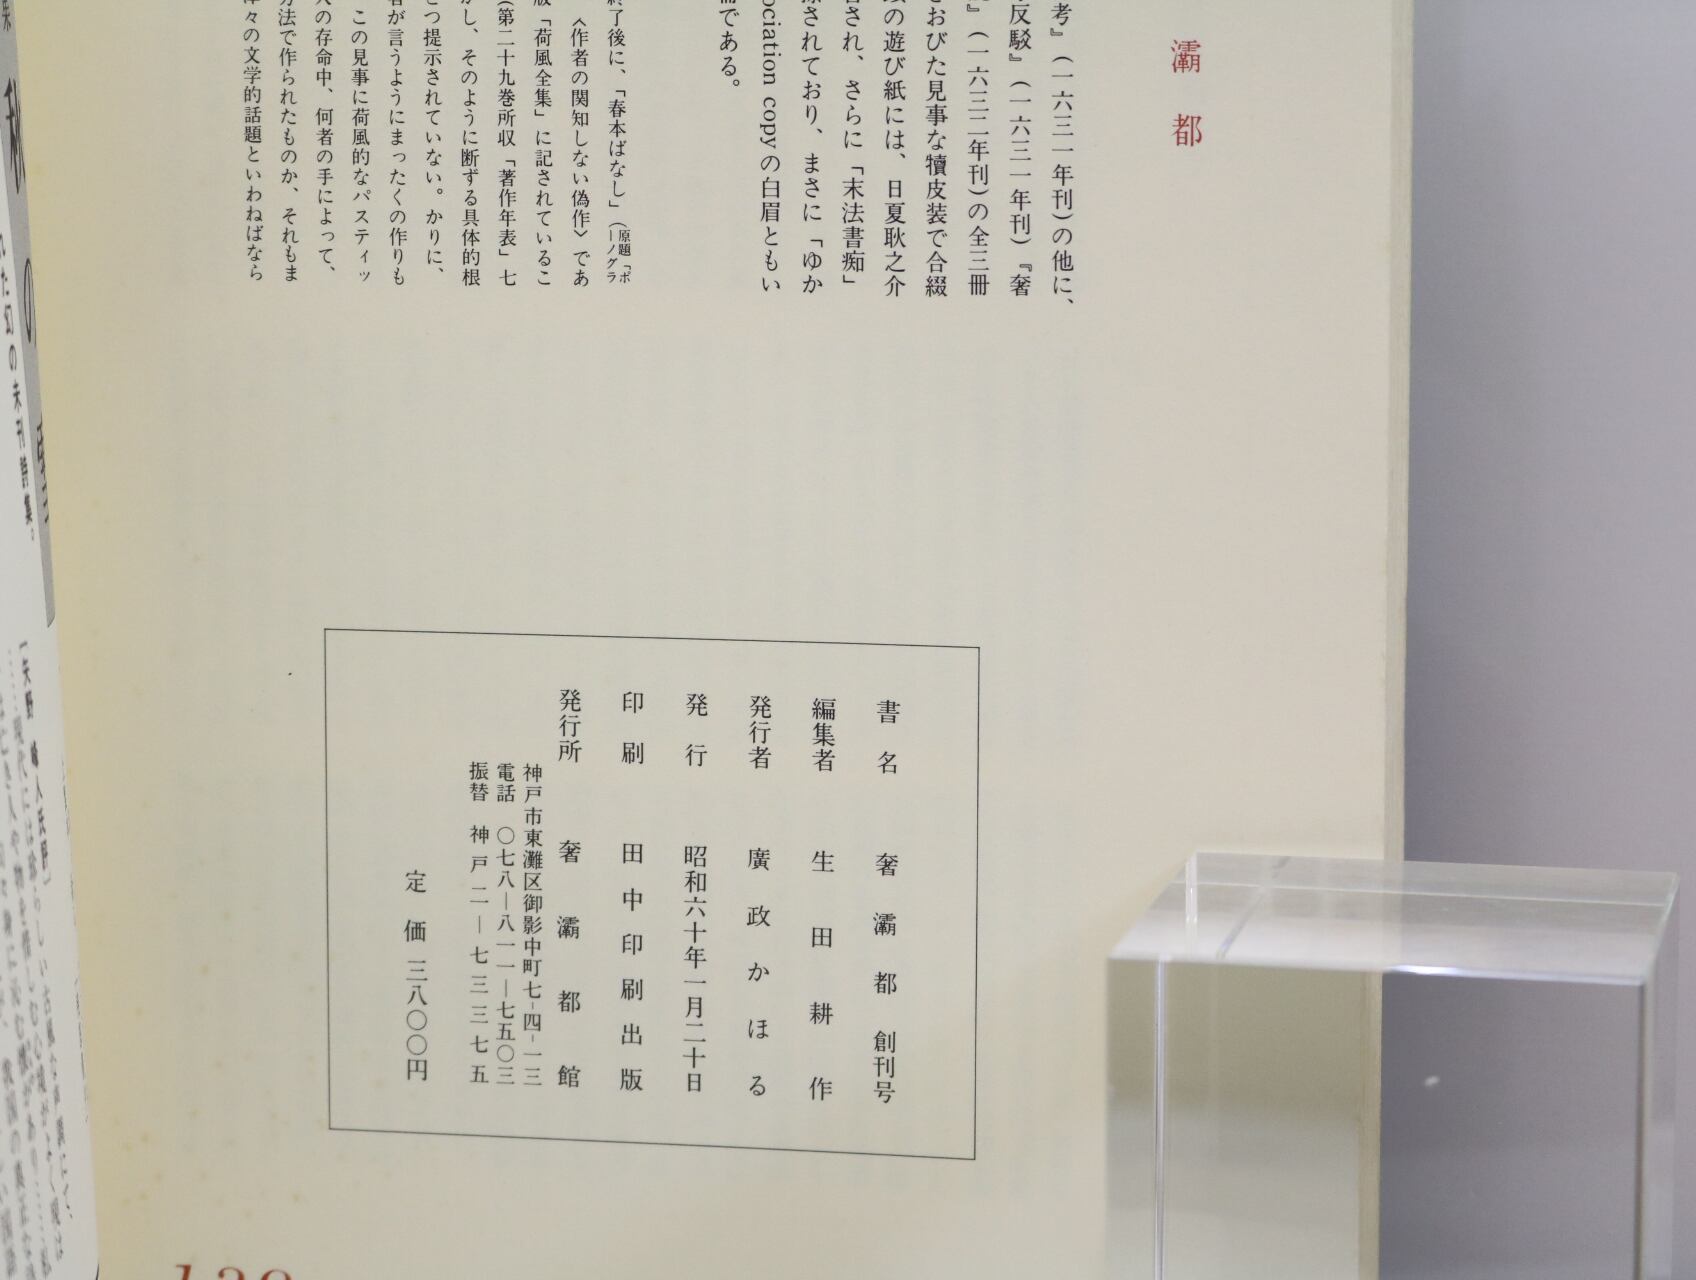 灞都
考』（一六三一年刊）の他に、
反駁』（一六三一年刊）『奢
』（一六三二年刊）の全三冊
をおびた見事な犢皮装で合綴
の遊び紙には、日夏耿之介
され、さらに「末法書痴」
されており、まさに「ゆか
ociation copyの白眉ともい
である。
終了後に、「春本ばなし」（原題「ポーノグラ
〈作者の関知しない偽作〉であ
版「荷風全集」に記されているこ
（第二十九巻所収「著作年表」七
かし、そのように断ずる具体的根
とつ提示されていない。かりに、
者が言うようにまったくの作りも
この見事に荷風的なパスティッ
人の存命中、何者の手によって、
方法で作られたものか、それもま
津々の文学的話題といわねばなら
書名 奢灞都創刊号
編集者 生田耕作
発行者 廣政かほる
発行 昭和六十年一月二十日
印刷 田中印刷出版
発行所 奢灞都館
神戸市東灘区御影中町七-四-一三
電話 〇七八―八一一―七五〇三
振替 神戸二―七三三七五
定価 三八〇〇円
れた幻の未刊詩集。